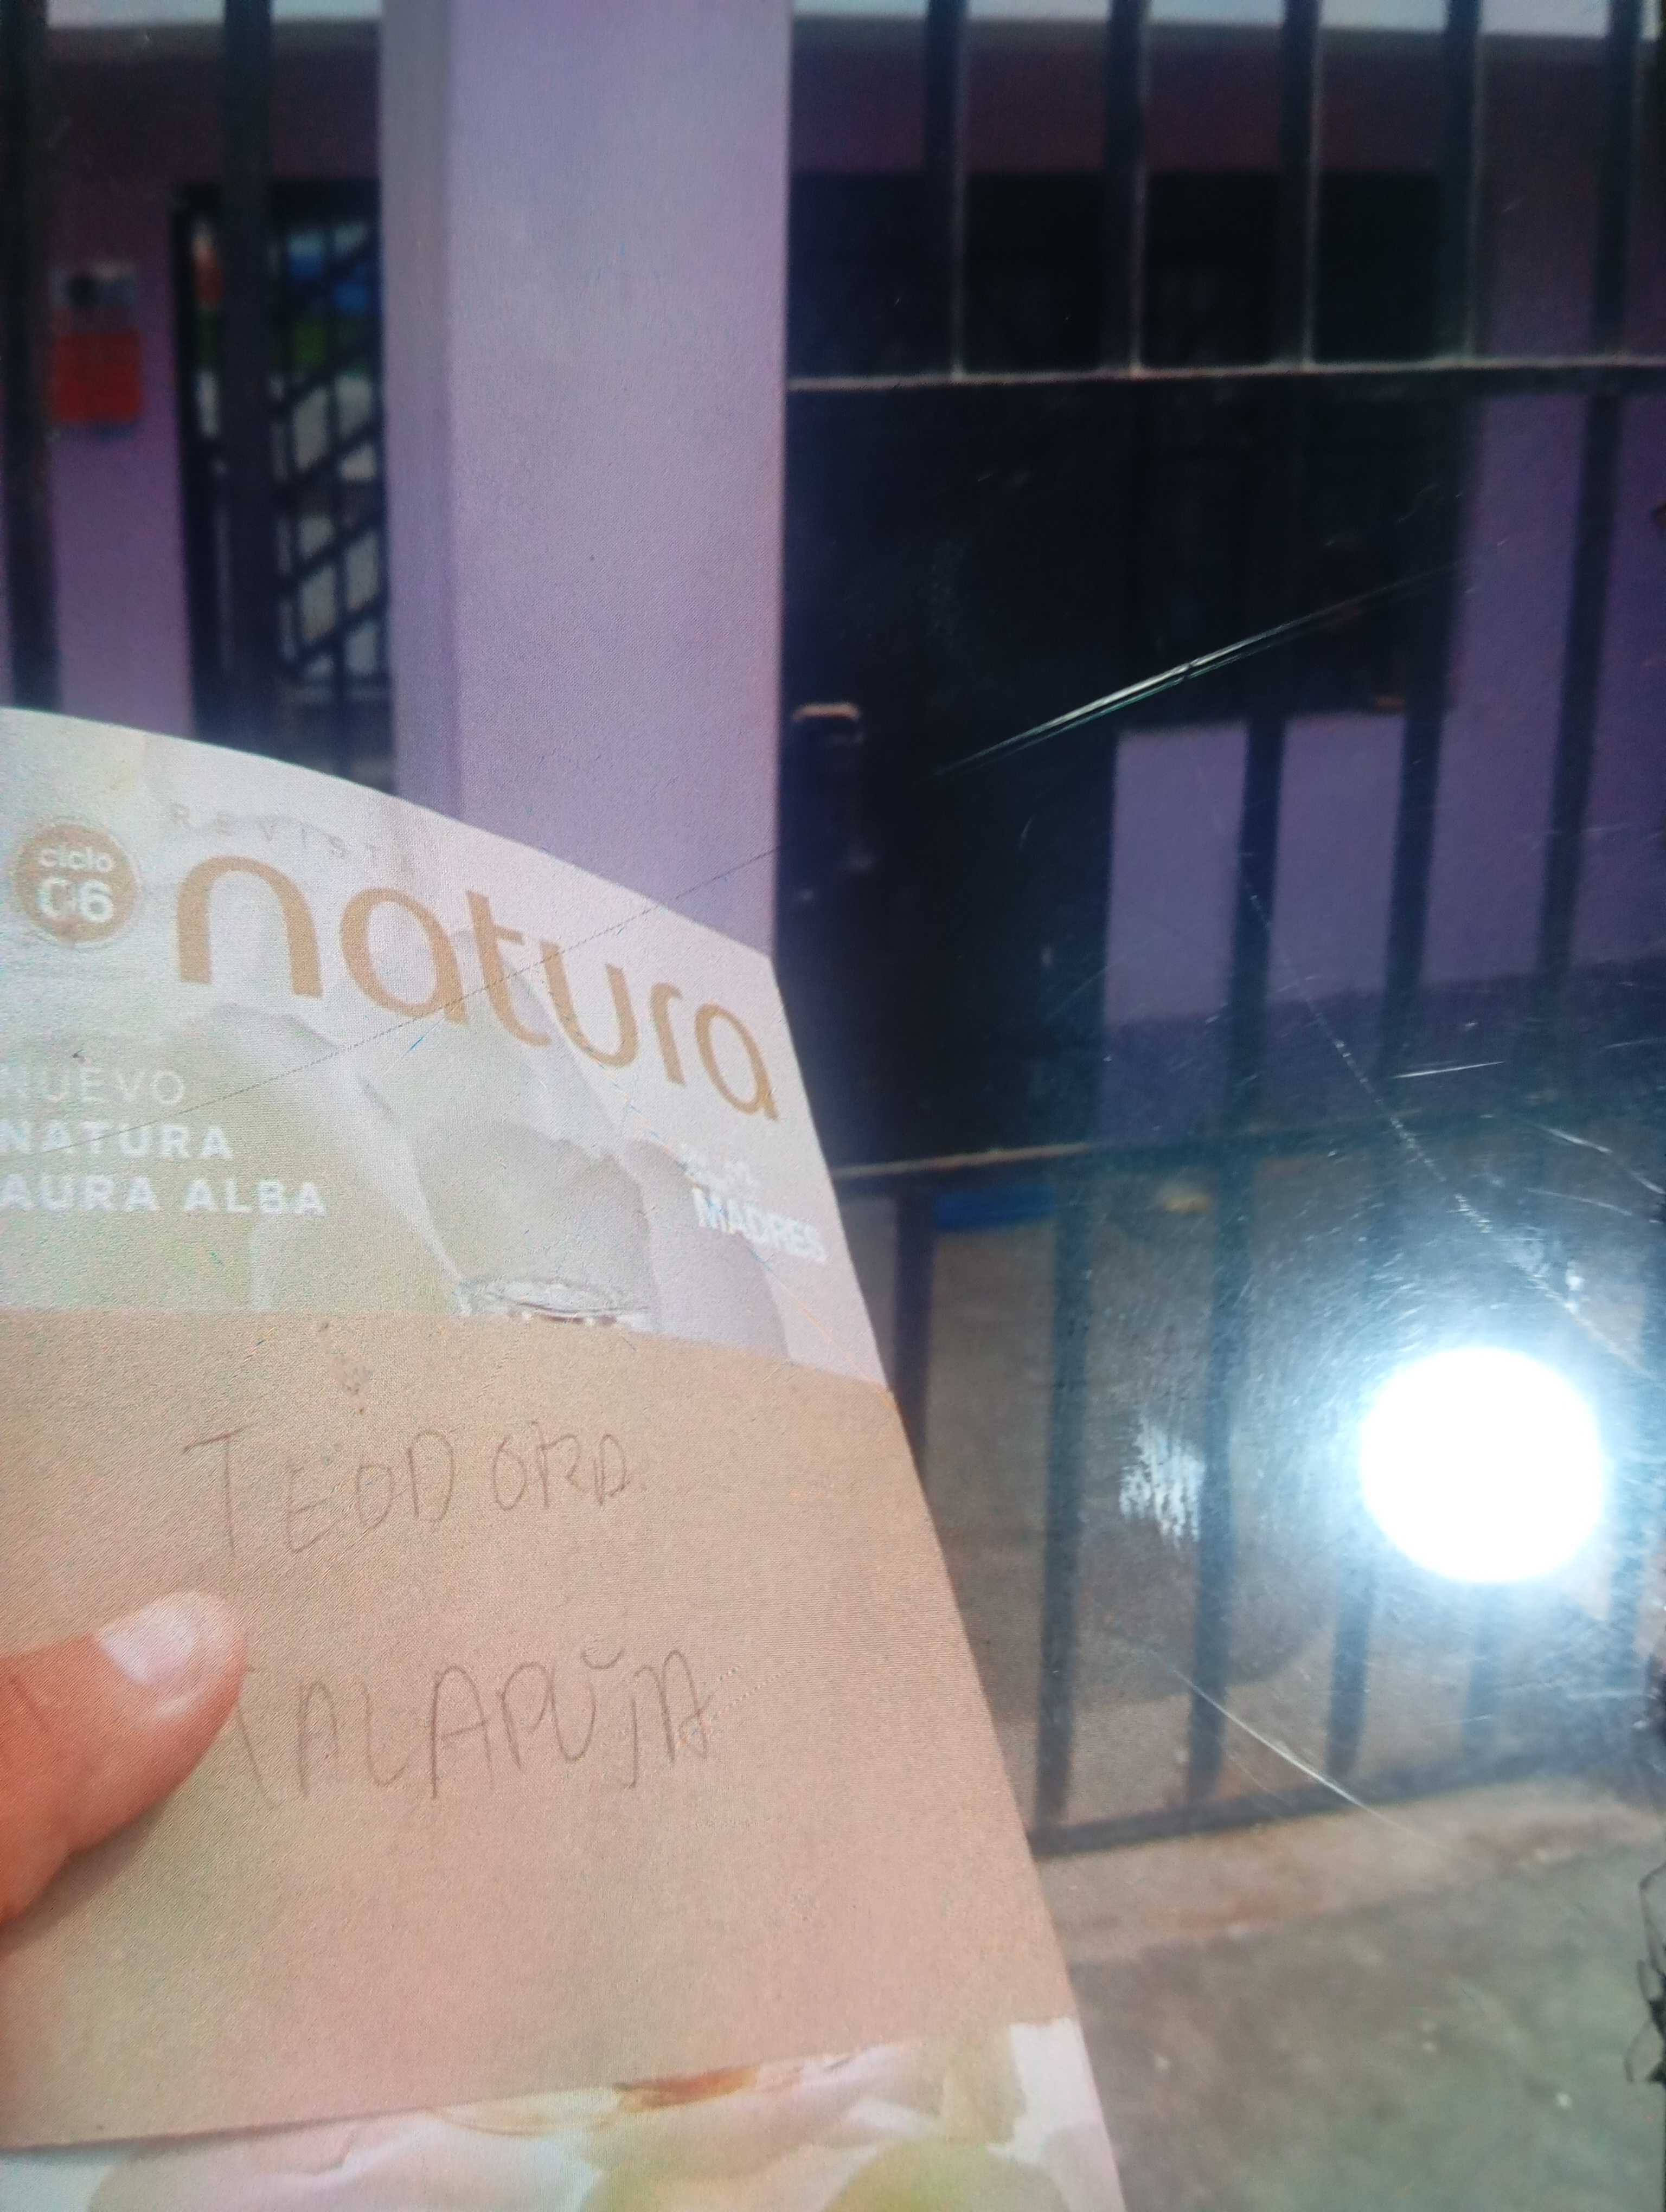 REVISTA
ciclo
06
natura
NUEVO
NATURA
AURA ALBA
MADRES
TEODORA